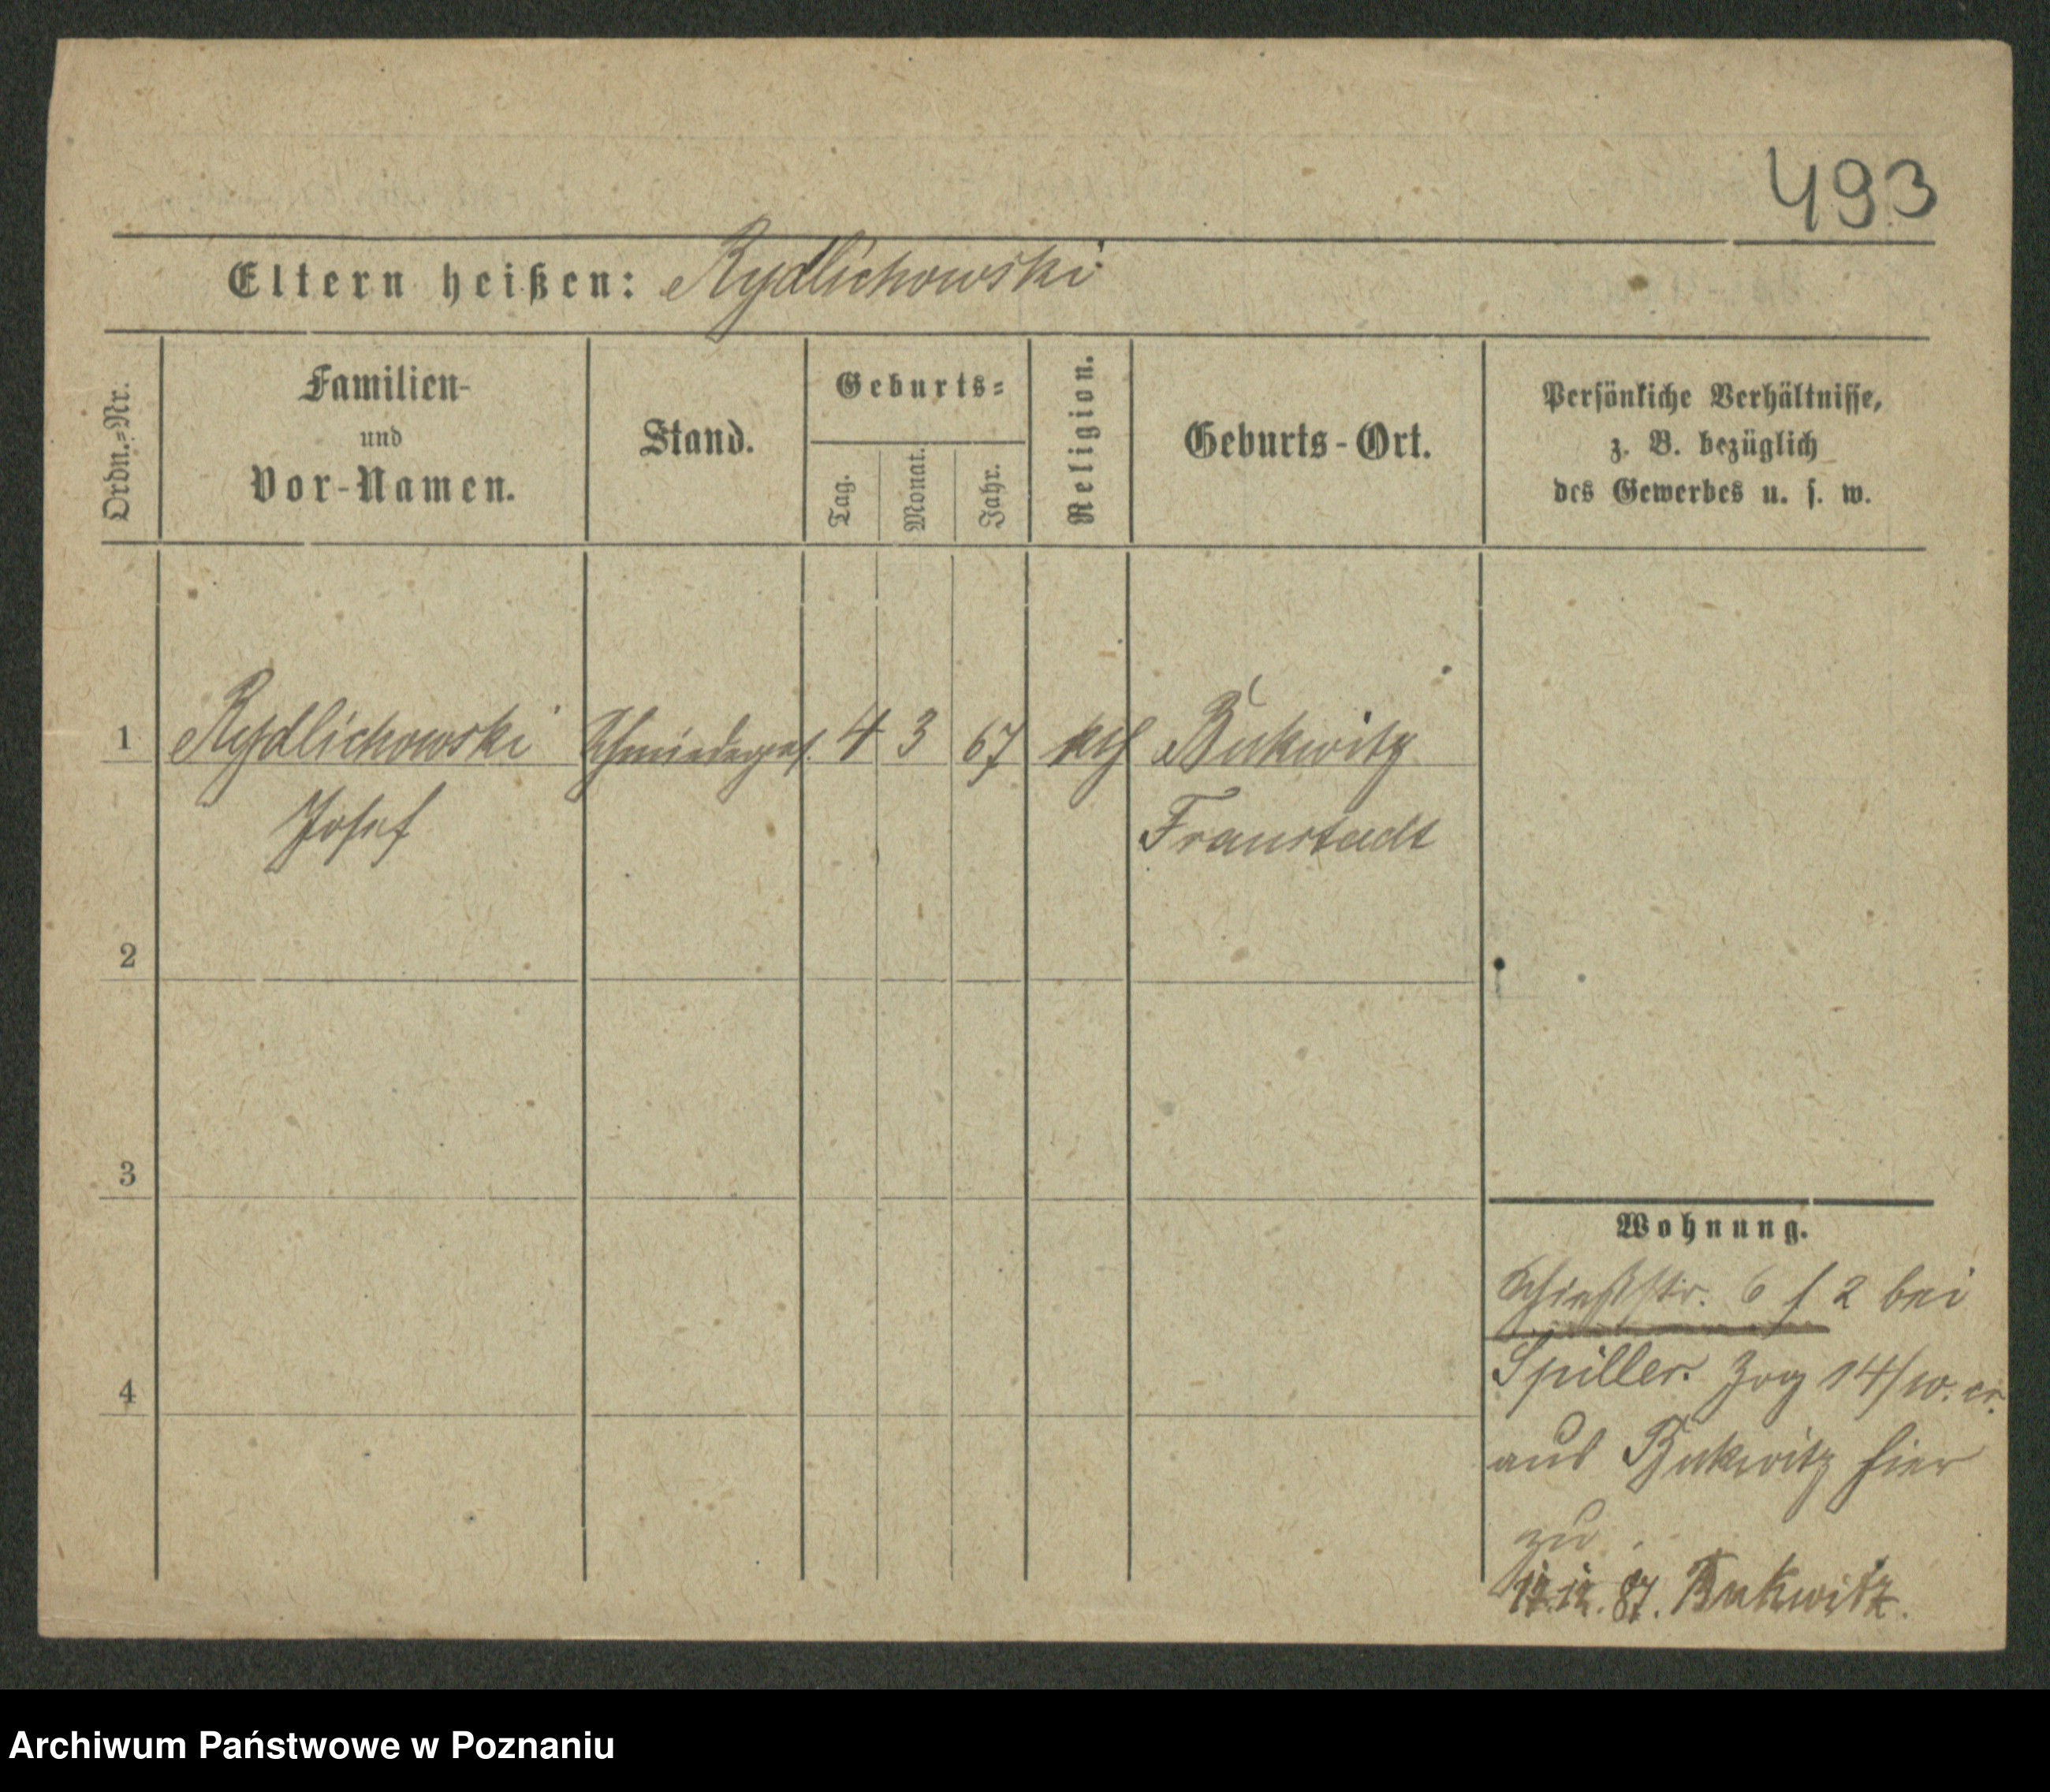 493
Eltern heißen: Rydlichowski
Ordn.=Nr.
Familien-
und
Vor-Namen.
Stand.
Geburts=
Tag.
Monat.
Jahr.
Religion.
Geburts-Ort.
Persönliche Verhältnisse,
z. B. bezüglich
des Gewerbes u. s. w.
1 Rydlichowski Schmiedeges. 4 3 67 kth Bukwitz
Josef Fraustadt
2
3
4
Wohnung.
Schießstr. 6 f 2 bei
Spiller. Zog 14/10. cr.
aus Bukwitz hier
zu.
12.12.87. Bukwitz.
Archiwum Państwowe w Poznaniu